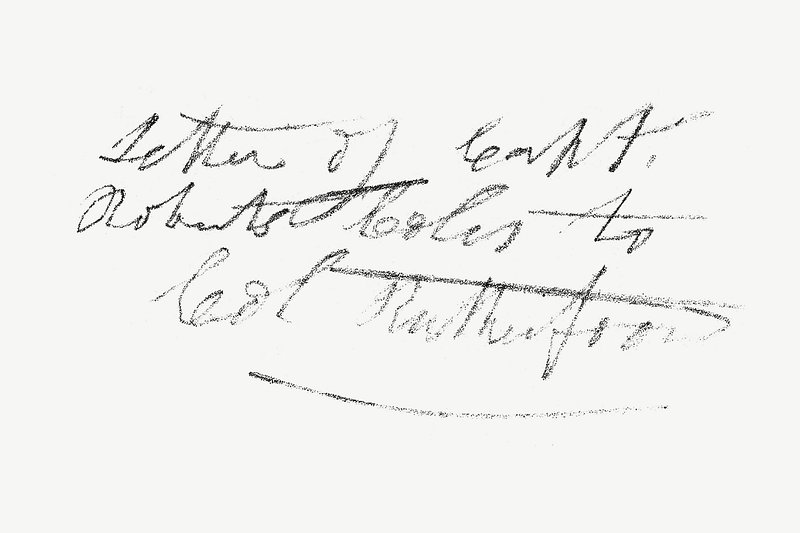 Letter of Capt.
Roberts Coles to
Col Rutherfoord